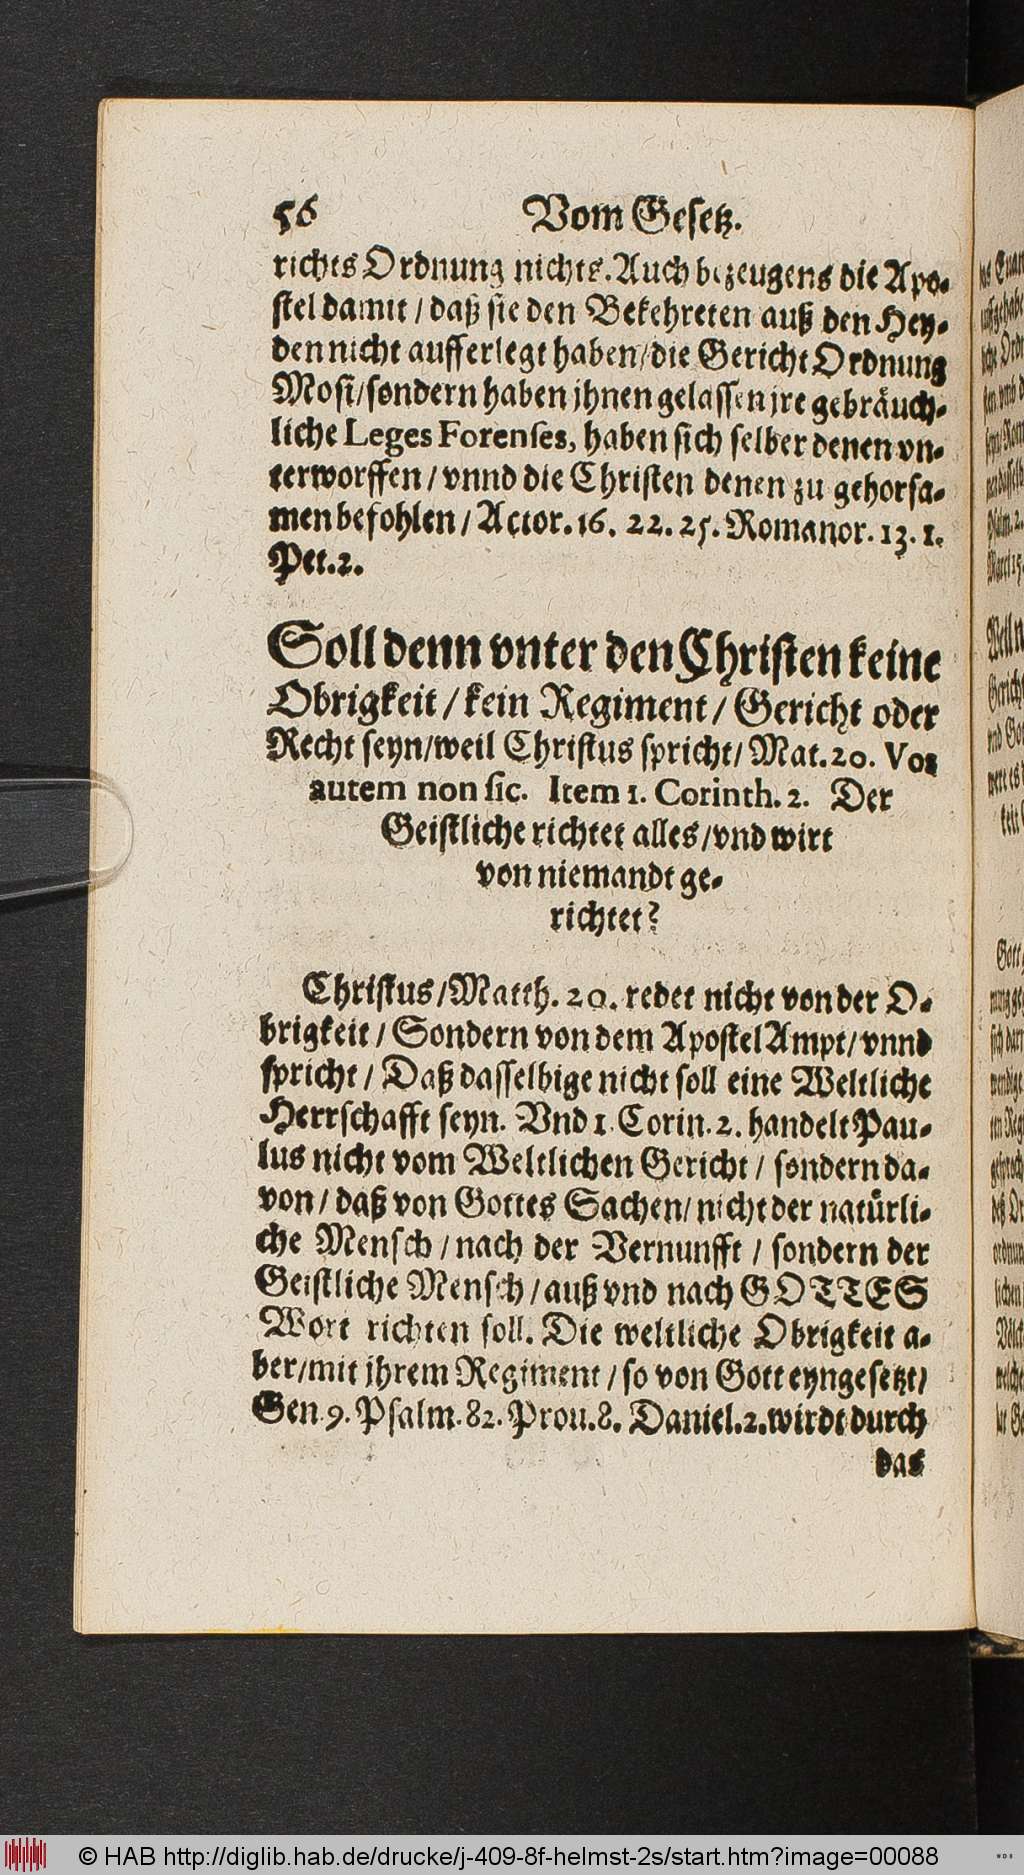 56 Vom Gesetz.
richts Ordnung nichts. Auch bezeugens die Apo-
stel damit / daß sie den Bekehreten auß den Hey-
den nicht aufferlegt haben / die Gericht Ordnung
Mosi / sondern haben ihnen gelassen jre gebräuch-
liche Leges Forenses, haben sich selber denen vn-
terworffen / vnnd die Christen denen zu gehorsa-
men befohlen / Actor. 16. 22. 25. Romanor. 13. 1.
Pet. 2.
Soll denn vnter den Christen keine
Obrigkeit / kein Regiment / Gericht oder
Recht seyn / weil Christus spricht / Mat. 20. Vos
autem non sic. Item 1. Corinth. 2. Der
Geistliche richtet alles / vnd wirt
von niemandt ge-
richtet?
Christus / Matth. 20. redet nicht von der O-
brigkeit / Sondern von dem Apostel Ampt / vnnd
spricht / Daß dasselbige nicht soll eine Weltliche
Herrschafft seyn. Vnd 1. Corin. 2. handelt Pau-
lus nicht vom Weltlichen Gericht / sondern da-
von / daß von Gottes Sachen / nicht der natürli-
che Mensch / nach der Vernunfft / sondern der
Geistliche Mensch / auß vnd nach GOTTES
Wort richten soll. Die weltliche Obrigkeit a-
ber / mit ihrem Regiment / so von Gott eyngesetzt /
Gen. 9. Psalm. 82. Prou. 8. Daniel. 2. wirdt durch
das
© HAB http://diglib.hab.de/drucke/j-409-8f-helmst-2s/start.htm?image=00088